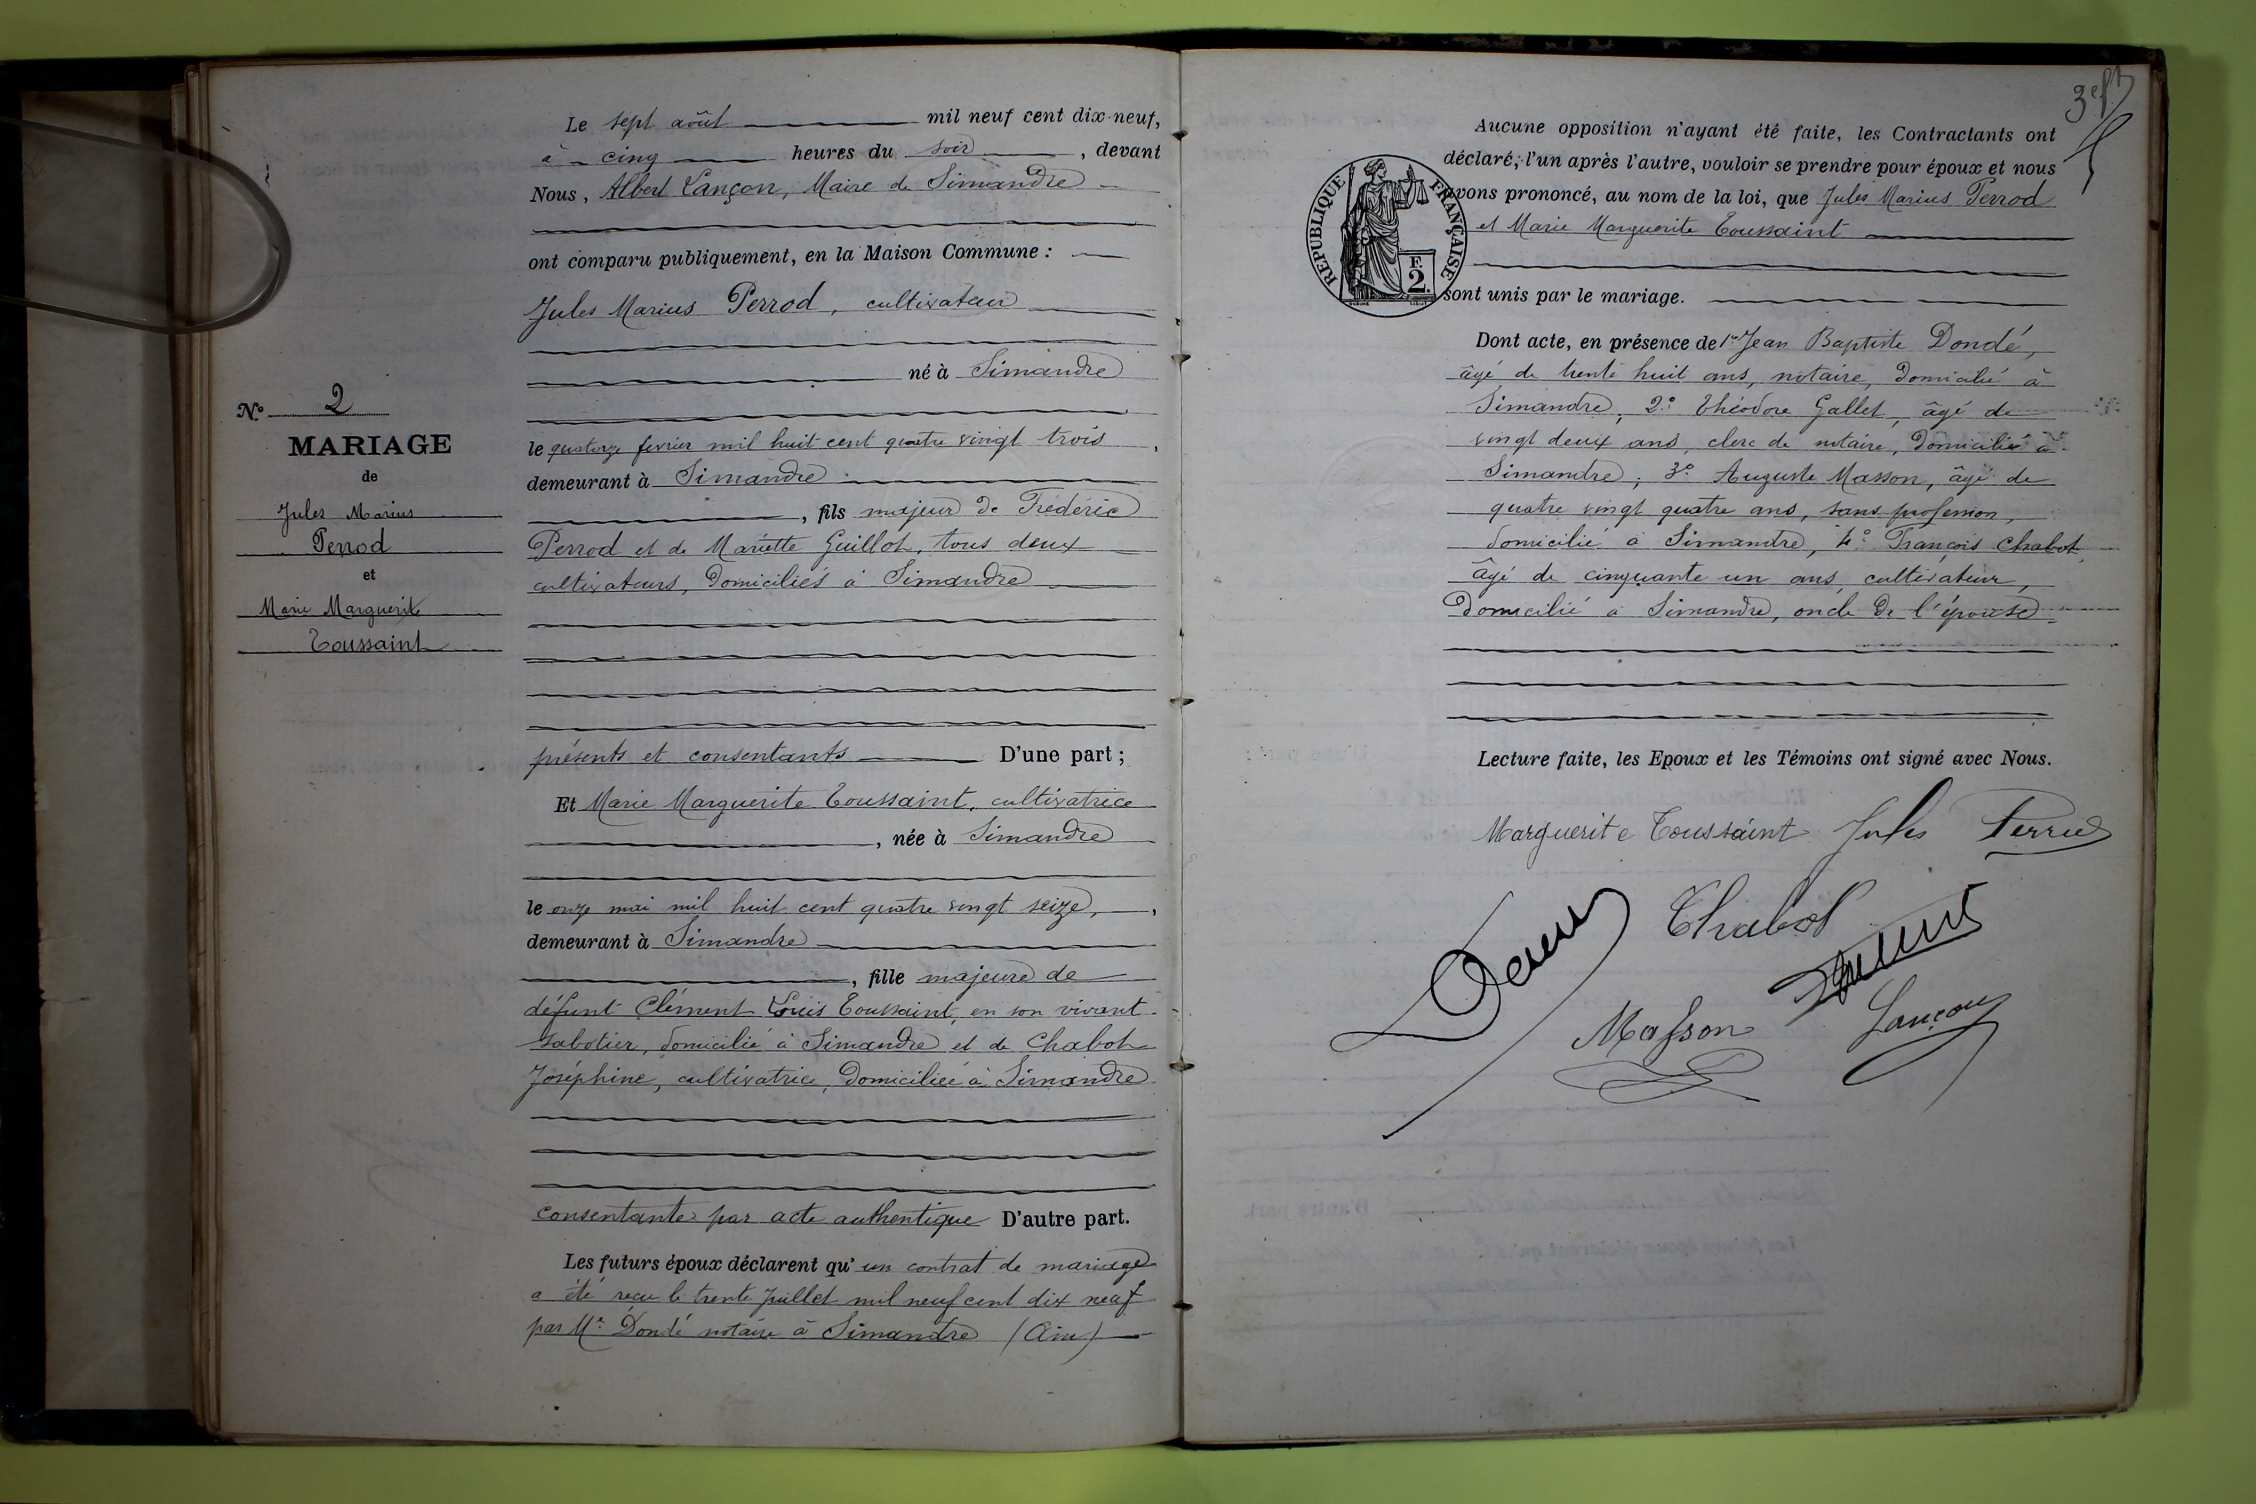 Le sept août mil neuf cent dix-neuf,
à cinq heures du soir, devant
Nous, Albert Lançon, Maire de Simandre
ont comparu publiquement, en la Maison Commune :
Jules Marius Perrod, cultivateur
né à Simandre
le quatorze fevrier mil huit cent quatre vingt trois,
demeurant à Simandre
, fils majeur de Frédéric
Perrod et de Mariette Guillot, tous deux
cultivateurs, domiciliés à Simandre
présents et consentants D'une part ;
Et Marie Marguerite Toussaint, cultivatrice
, née à Simandre
le onze mai mil huit cent quatre vingt seize,
demeurant à Simandre
, fille majeure de
défunt Clément Louis Toussaint, en son vivant
sabotier, domicilié à Simandre et de Chabot
Joséphine, cultivatrice, domiciliée à Simandre
consentante par acte authentique D'autre part.
Les futurs époux déclarent qu'un contrat de mariage
a été reçu le trente juillet mil neuf cent dix neuf
par Me Dondé notaire à Simandre (Ain)
No 2
MARIAGE
de
Jules Marius
Perrod
et
Marie Marguerite
Toussaint
3e
RÉPUBLIQUE FRANÇAISE
F.
2.
Aucune opposition n'ayant été faite, les Contractants ont
déclaré, l'un après l'autre, vouloir se prendre pour époux et nous
avons prononcé, au nom de la loi, que Jules Marius Perrod
et Marie Marguerite Toussaint
sont unis par le mariage.
Dont acte, en présence de 1er Jean Baptiste Dondé,
âgé de trente huit ans, notaire, domicilié à
Simandre, 2o Théodore Gallet, âgé de
vingt deux ans, clerc de notaire, domicilié à
Simandre ; 3o Auguste Masson, âgé de
quatre vingt quatre ans, sans profession,
domicilié à Simandre, 4o François Chabot
âgé de cinquante un ans, cultivateur,
domicilié à Simandre, oncle de l'épouse
Lecture faite, les Epoux et les Témoins ont signé avec Nous.
Marguerite Toussaint Jules Perrod
Chabot
Masson
Lançon